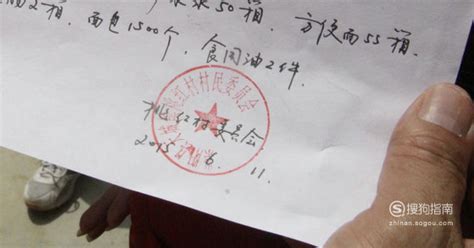 2箱，面包1500个，食用油2件。
50箱，方便面55箱，
桃红村委员会
2015.6.11.
红村村民委员会
搜狗指南
zhinan.sogou.com